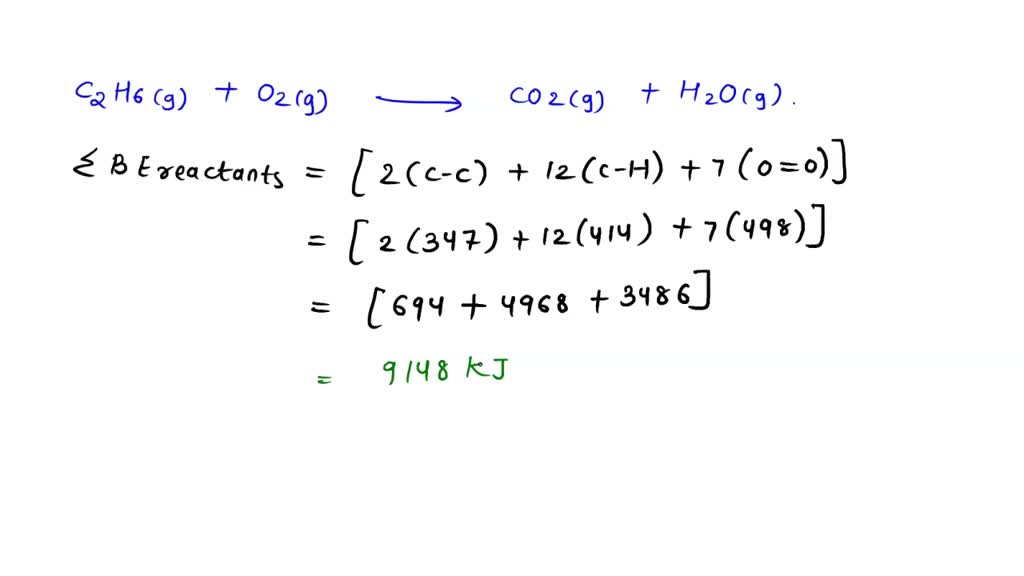 C2H6(g) + O2(g) ⟶ CO2(g) + H2O(g).
Σ BE reactants = [2(C-C) + 12(C-H) + 7(O=O)]
= [2(347) + 12(414) + 7(498)]
= [694 + 4968 + 3486]
= 9148 KJ